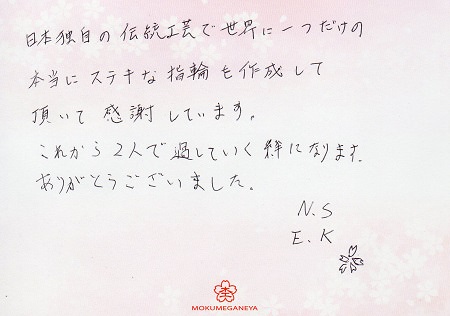 日本独自の伝統工芸で世界に一つだけの
本当にステキな指輪を作成して
頂いて感謝しています。
これから2人で過していく絆になります.
ありがとうございました。
N.S
E.K
MOKUMEGANEYA